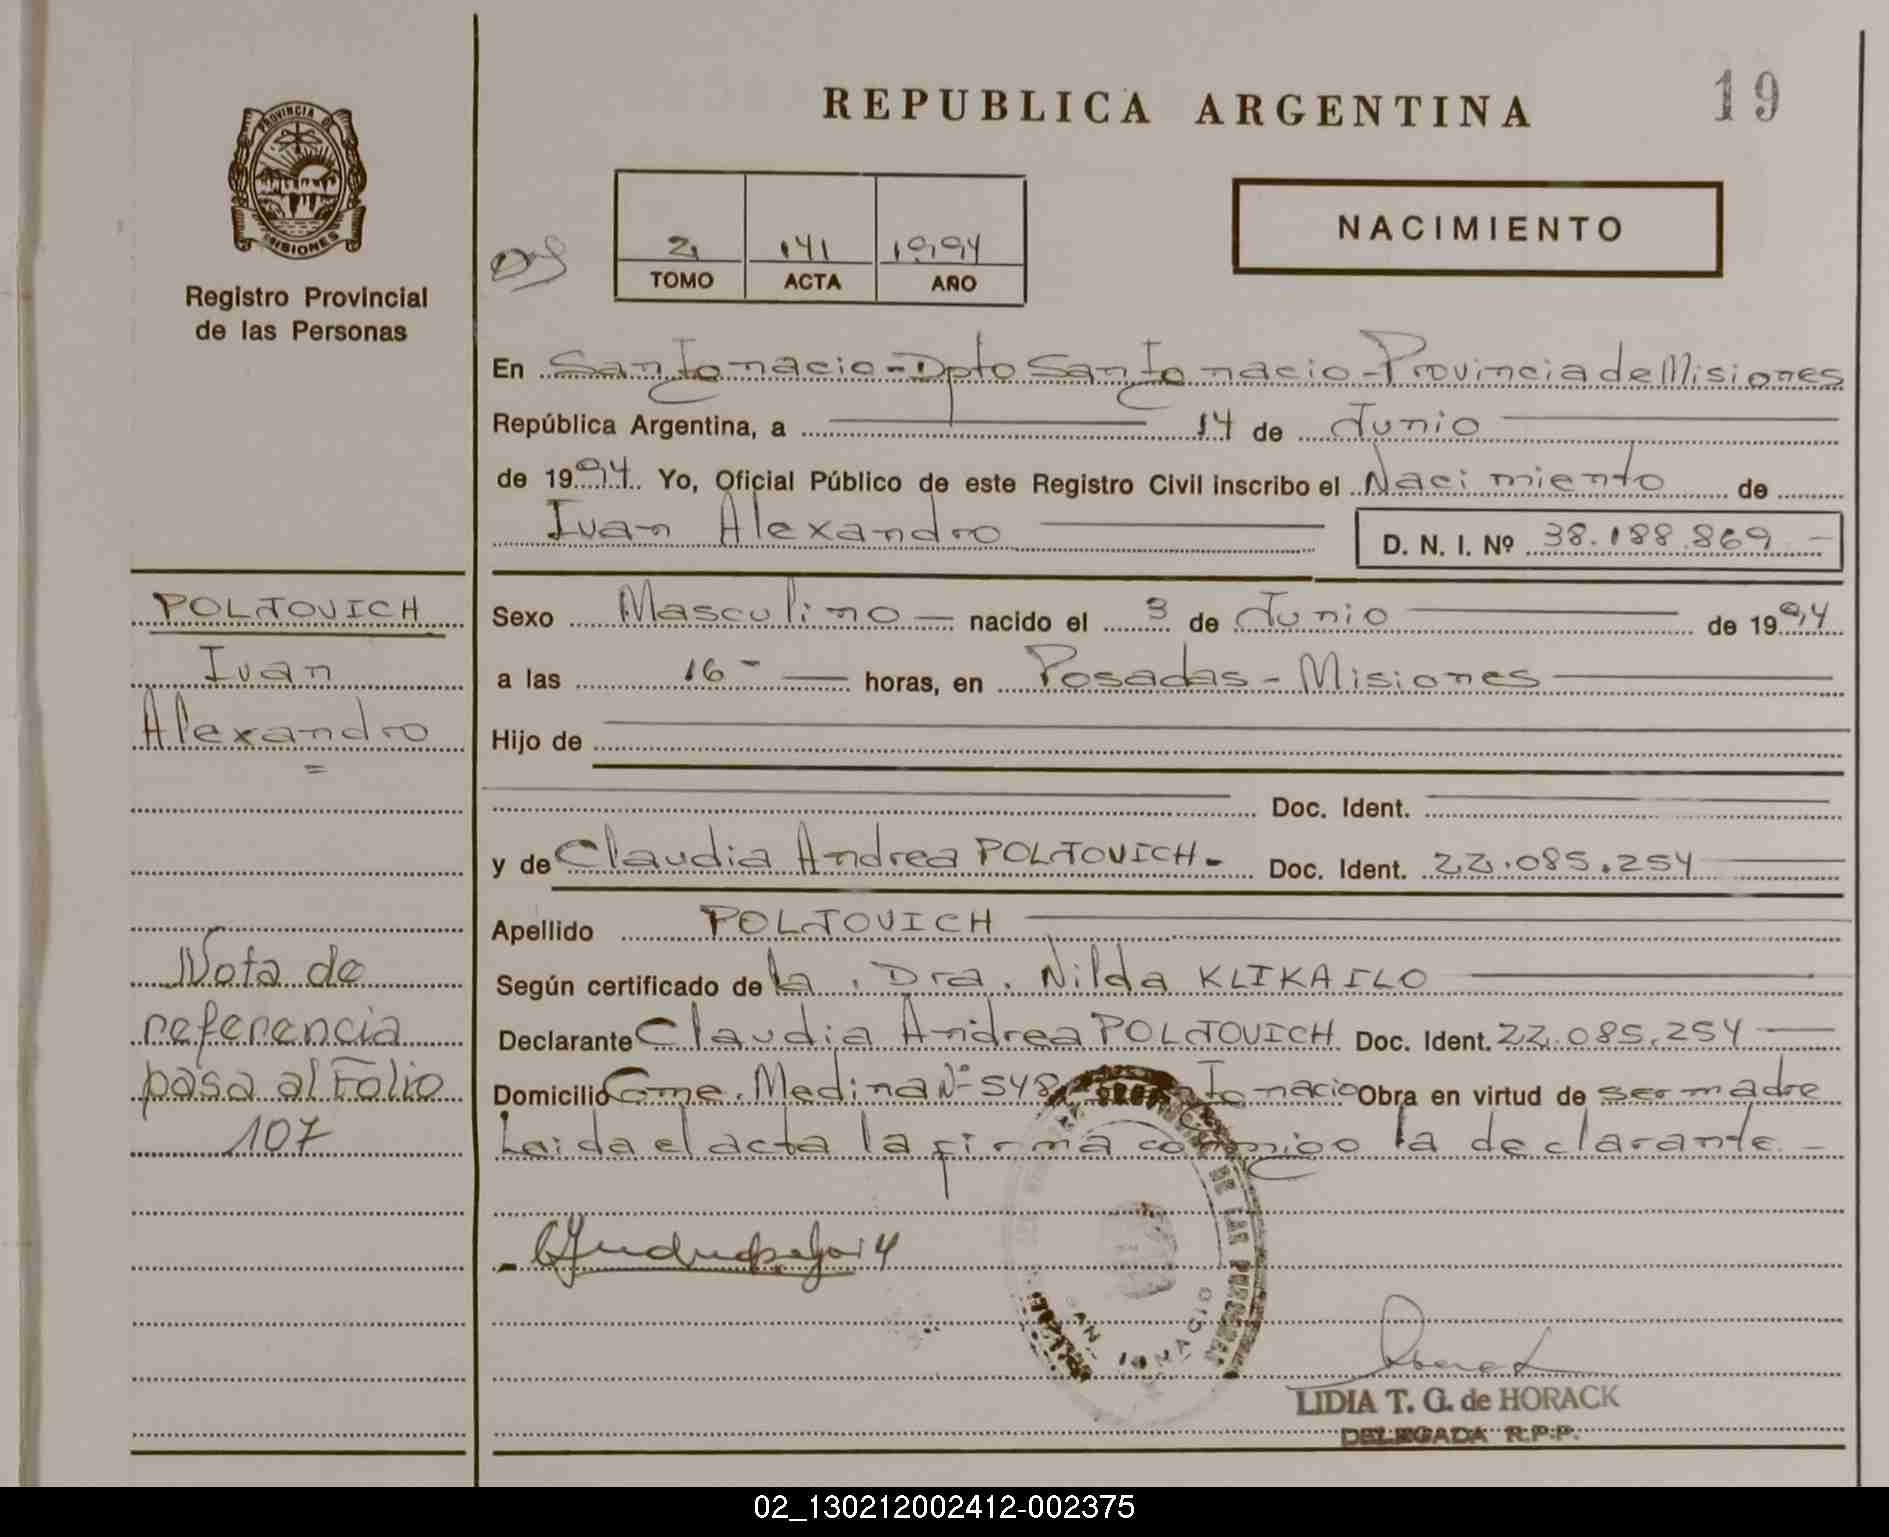 REPUBLICA ARGENTINA
19
PROVINCIA DE
MISIONES
Registro Provincial
de las Personas
2 141 1994
TOMO ACTA AÑO
NACIMIENTO
En San Ignacio - Dpto San Ignacio - Provincia de Misiones
República Argentina, a 14 de Junio
de 1994 Yo, Oficial Público de este Registro Civil inscribo el Nacimiento de
Ivan Alexandro D. N. I. Nº 38.188.869 -
POLJOVICH
Ivan
Alexandro
Sexo Masculino nacido el 3 de Junio de 1994
a las 16 - horas, en Posadas - Misiones
Hijo de
Doc. Ident.
y de Claudia Andrea POLJOVICH - Doc. Ident. 22.085.254
Apellido POLJOVICH
Según certificado de la Dra. Nilda KLIKAILO
Declarante Claudia Andrea POLJOVICH Doc. Ident. 22.085.254
Domicilio Cnme. Medina Nº 548 Ignacio Obra en virtud de ser madre
Leida el acta la firma conmigo la declarante -
Nota de
referencia
pasa al Folio
107
DE LAS PERSONAS
SAN IGNACIO
LIDIA T. G. de HORACK
DELEGADA R.P.P.
02_130212002412-002375